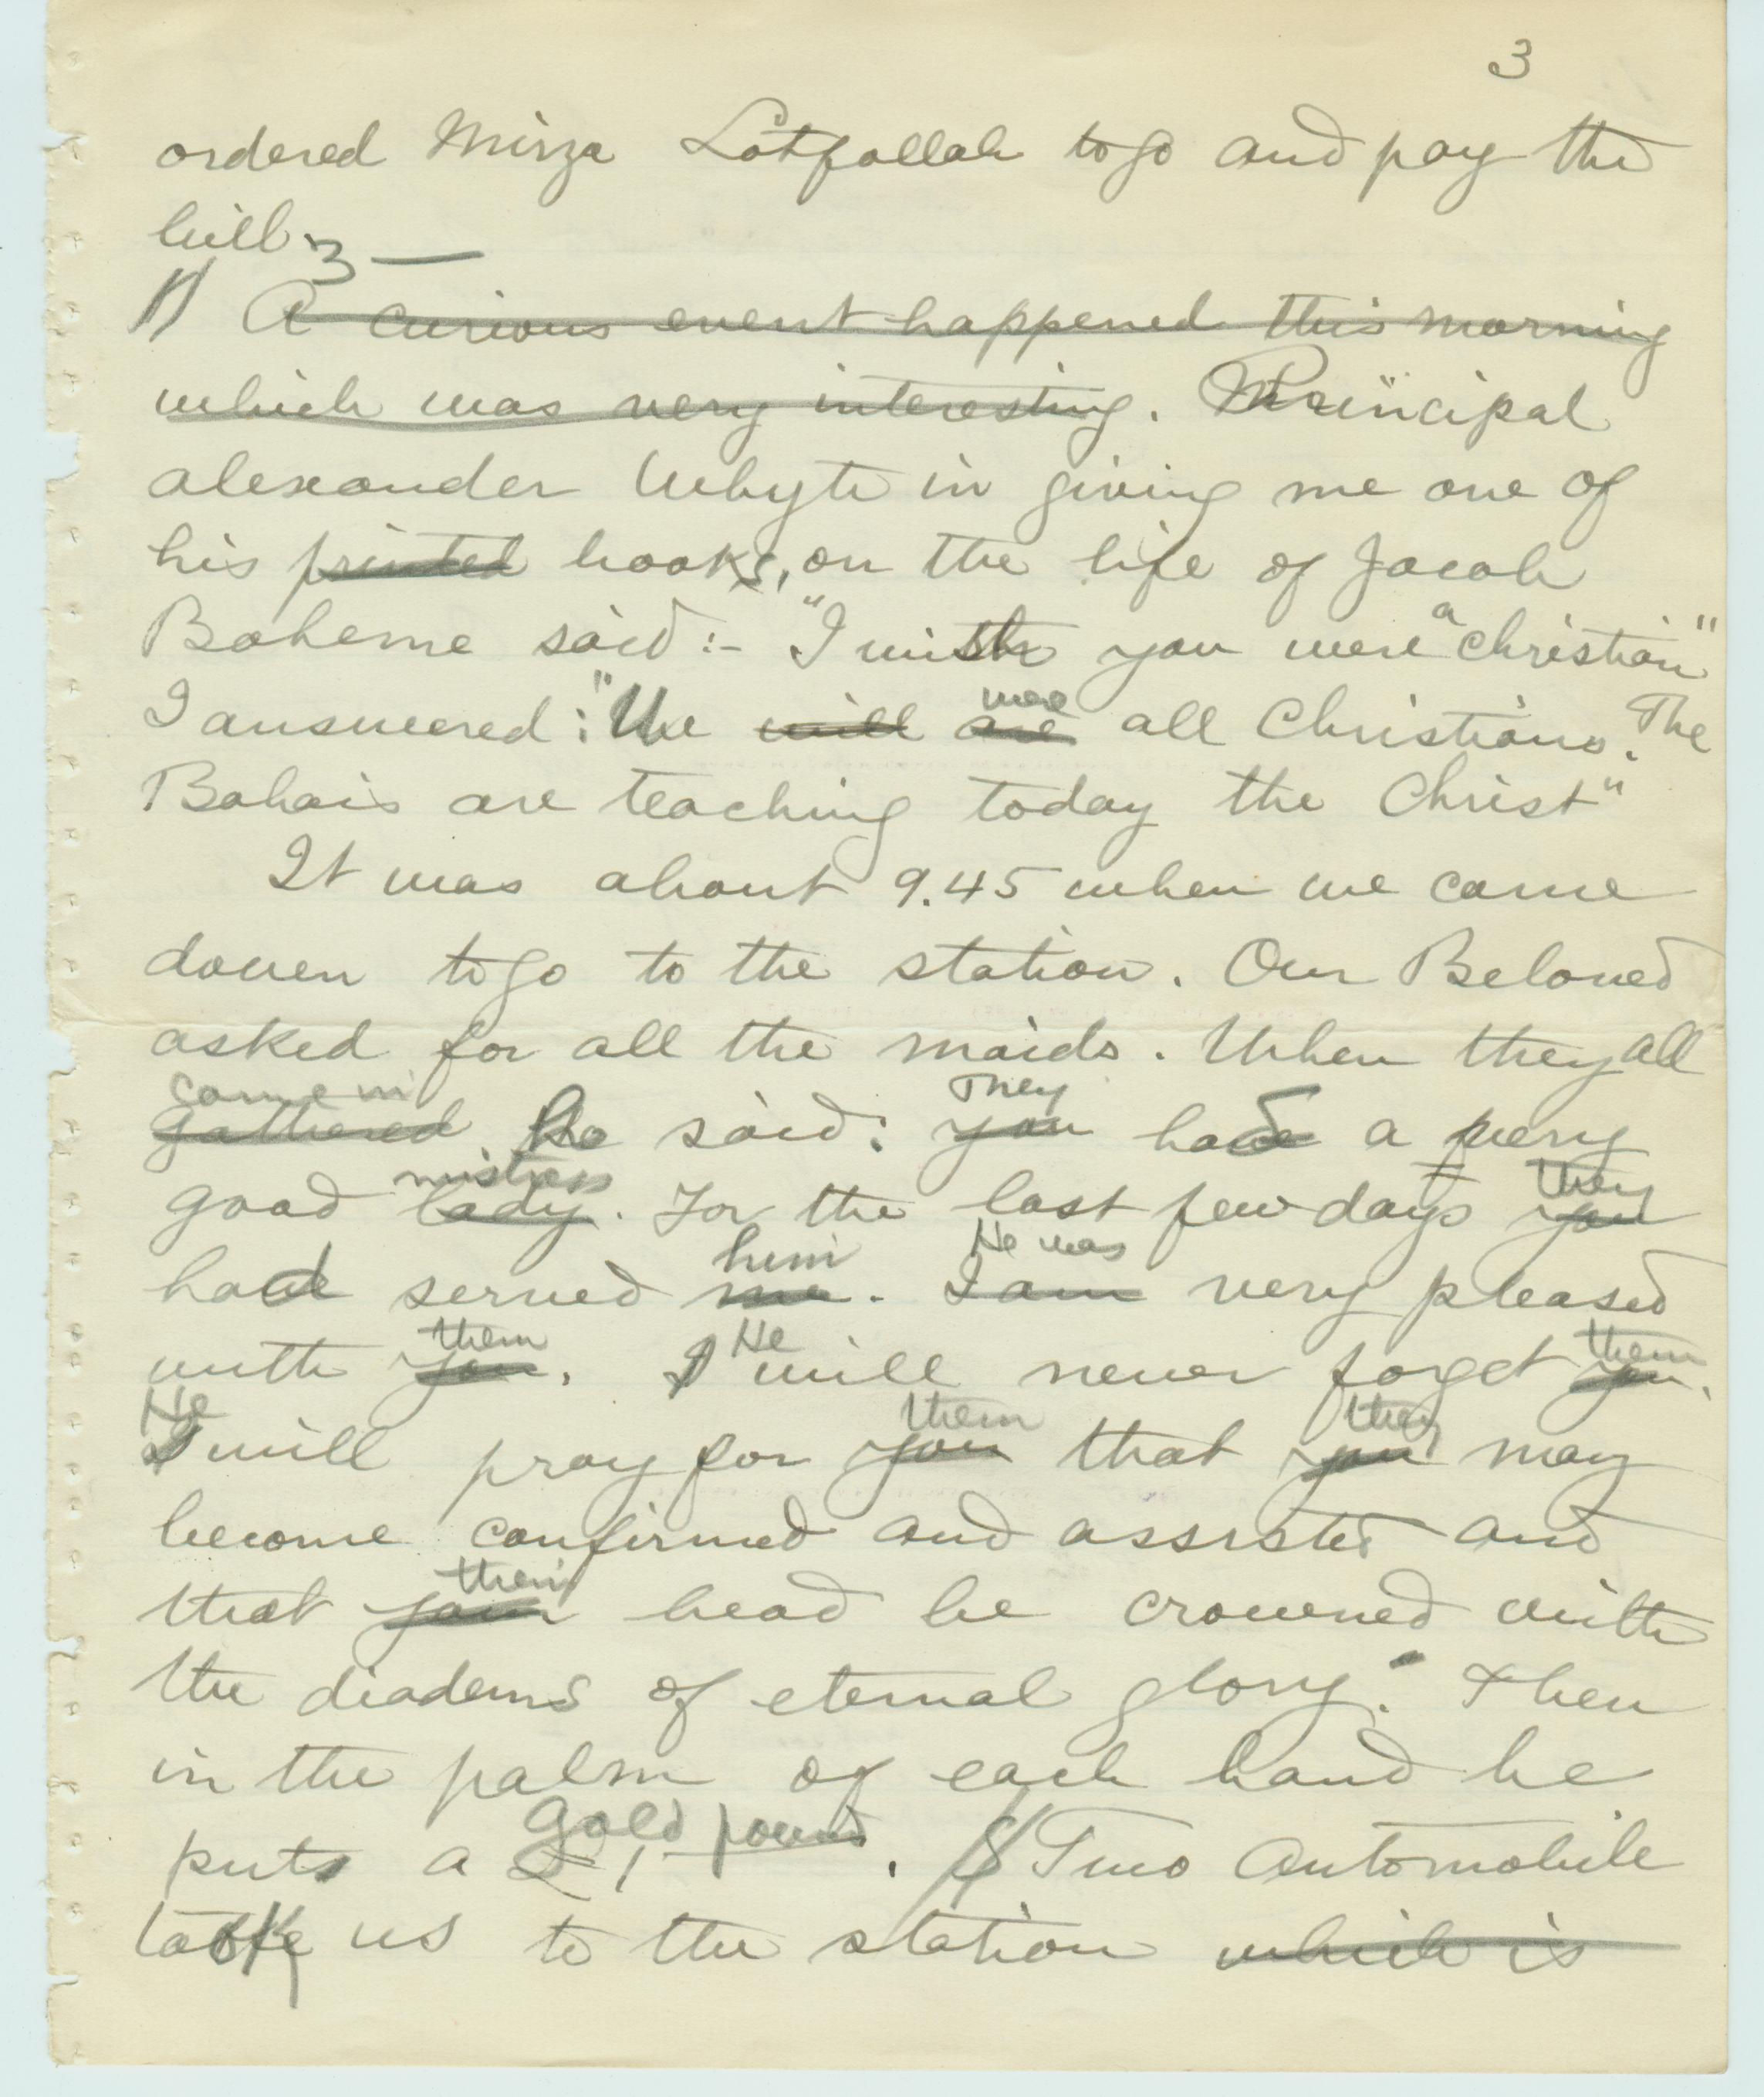 3
ordered Mirza Lotfollah to go and pay the
bill 3 —
// A curious event happened this morning
which was very interesting. Principal
Alexander Whyte in giving me one of
his printed books, on the life of Jacob
Boheme said:- "I wish you were a Christian"
I answered: "We will are were all Christians. The
Bahais are teaching today the Christ"
It was about 9.45 when we came
down to go to the station. Our Beloved
asked for all the maids. When they all
gathered came in he said: you They had a very
good lady mistress. For the last few days you they
had served me him. I am He was very pleased
with you them. I He will never forget you them.
I He will pray for you them that you they may
become confirmed and assisted and
that your their head be crowned with
the diadems of eternal glory." Then
in the palm of each hand he
puts a £1 gold pound. // Two Automobile
took us to the station which is